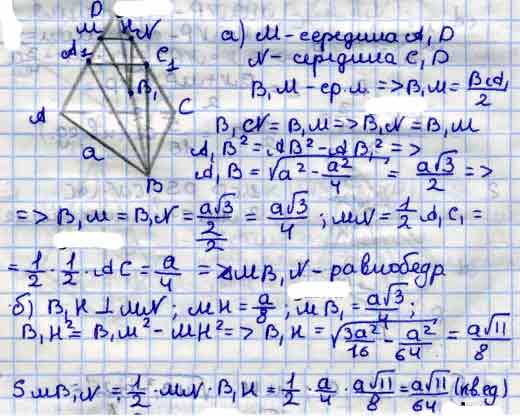 D
M H N
A₁ C₁
B₁
A C
a
B
а) M - середина A₁D
N - середина C₁D
B₁M - ср.л. => B₁M = BA₁/2
B₁N = B₁M => B₁N = B₁M
A₁B² = AB² - AB₁² =>
A₁B = √(a² - a²/4) = a√3/2 =>
=> B₁M = B₁N = (a√3/2)/2 = a√3/4 ; MN = 1/2 A₁C₁ =
= 1/2 · 1/2 · AC = a/4 => △MB₁N - равнобедр
б) B₁H ⊥ MN ; MH = a/8 ; MB₁ = a√3/4 ;
B₁H² = B₁M² - MH² => B₁H = √(3a²/16 - a²/64) = a√11/8
S MB₁N = 1/2 · MN · B₁H = 1/2 · a/4 · a√11/8 = a√11/64 (кв.ед)